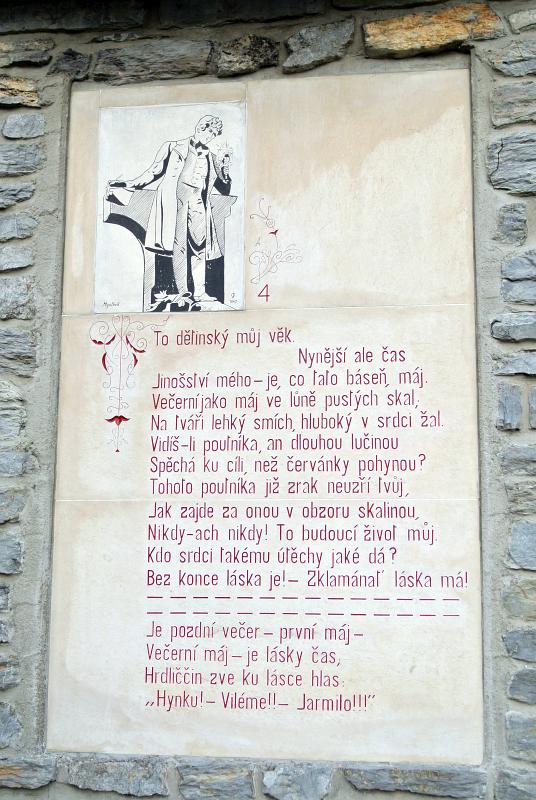 4
To dětinský můj věk.
Nynější ale čas
Jinošství mého - je, co tato báseň, máj.
Večerní jako máj ve lůně pustých skal;
Na tváři lehký smích, hluboký v srdci žal.
Vidíš-li poutníka, an dlouhou lučinou
Spěchá ku cíli, než červánky pohynou?
Tohoto poutníka již zrak neuzří tvůj,
Jak zajde za onou v obzoru skalinou,
Nikdy - ach nikdy! To budoucí život můj.
Kdo srdci takému útěchy jaké dá?
Bez konce láska je! - Zklamánať láska má!
Je pozdní večer - první máj -
Večerní máj - je lásky čas,
Hrdliččin zve ku lásce hlas:
„Hynku! - Viléme!! - Jarmilo!!!"